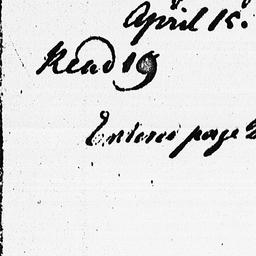 April 15.
Read 19
Entered page 2